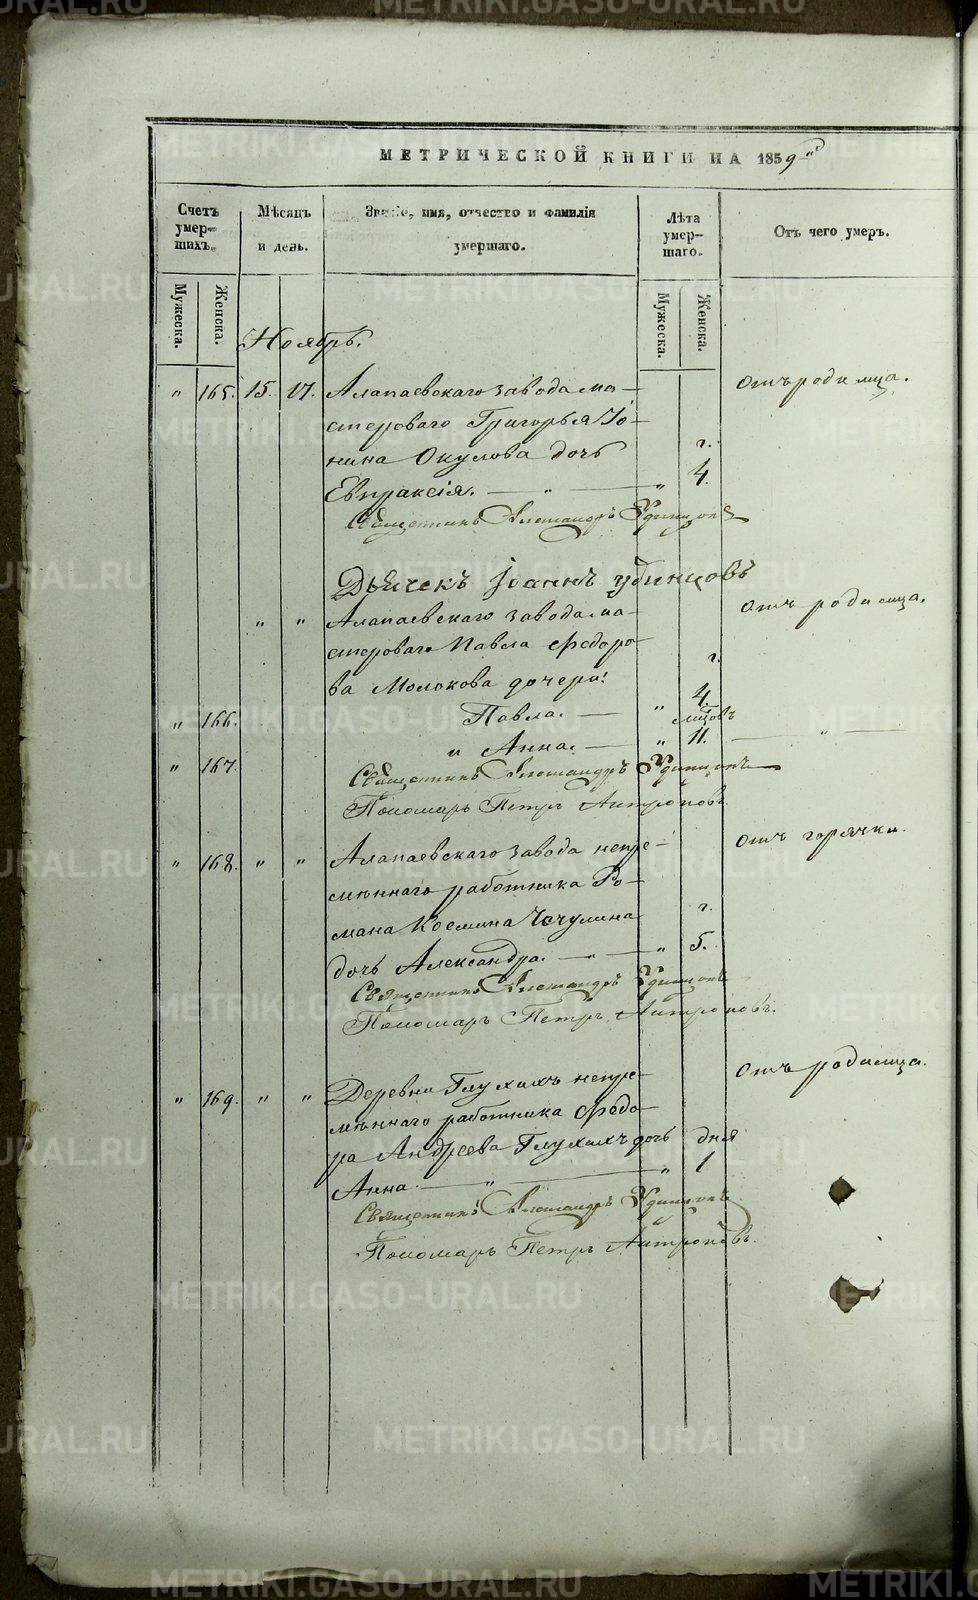 МЕТРИЧЕСКОЙ КНИГИ НА 1859 й
Счетъ умер-шихъ.
Мѣсяцъ и день.
Званіе, имя, отчество и фамилія умершаго.
Лѣта умер-шаго.
Отъ чего умеръ.
Мужеска.
Женска.
Мужеска.
Женска.
Ноябрь.
" 165. 15. 17. Алапаевскаго завода ма-
Отъ родимца.
стероваго Григорья Іо-
нина Окулова дочь г.
Евпраксія. — " — " 4.
Священникъ Александръ Удинцовъ
Дьячекъ Іоаннъ Удинцовъ
" " Алапаевскаго завода ма-
Отъ родимца.
стероваго Павла Ѳедоро-
ва Молокова дочери: г.
" 166. Павла. — " 4.
мѣсцовъ
" 167. и Анна. — " 11. — " —
Священникъ Александръ Удинцовъ
Пономарь Петръ Антроповъ.
" 168. " " Алапаевскаго завода непре-
Отъ горячки.
мѣннаго работника Ро-
мана Космина Чечулина г.
дочь Александра. — " — " 5.
Священникъ Александръ Удинцовъ
Пономарь Петръ Антроповъ.
" 169. " " Деревни Глухихъ непре-
Отъ родимца.
мѣннаго работника Ѳедо-
ра Андреева Глухихъ дочь дня
Анна. — " — " 1
Священникъ Александръ Удинцовъ
Пономарь Петръ Антроповъ.
METRIKI.GASO-URAL.RU